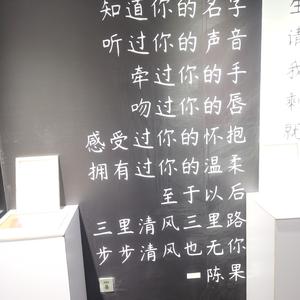 知道你的名字
听过你的声音
牵过你的手
吻过你的唇
感受过你的怀抱
拥有过你的温柔
至于以后
三里清风三里路
步步清风也无你
陈果
生
请
我
就